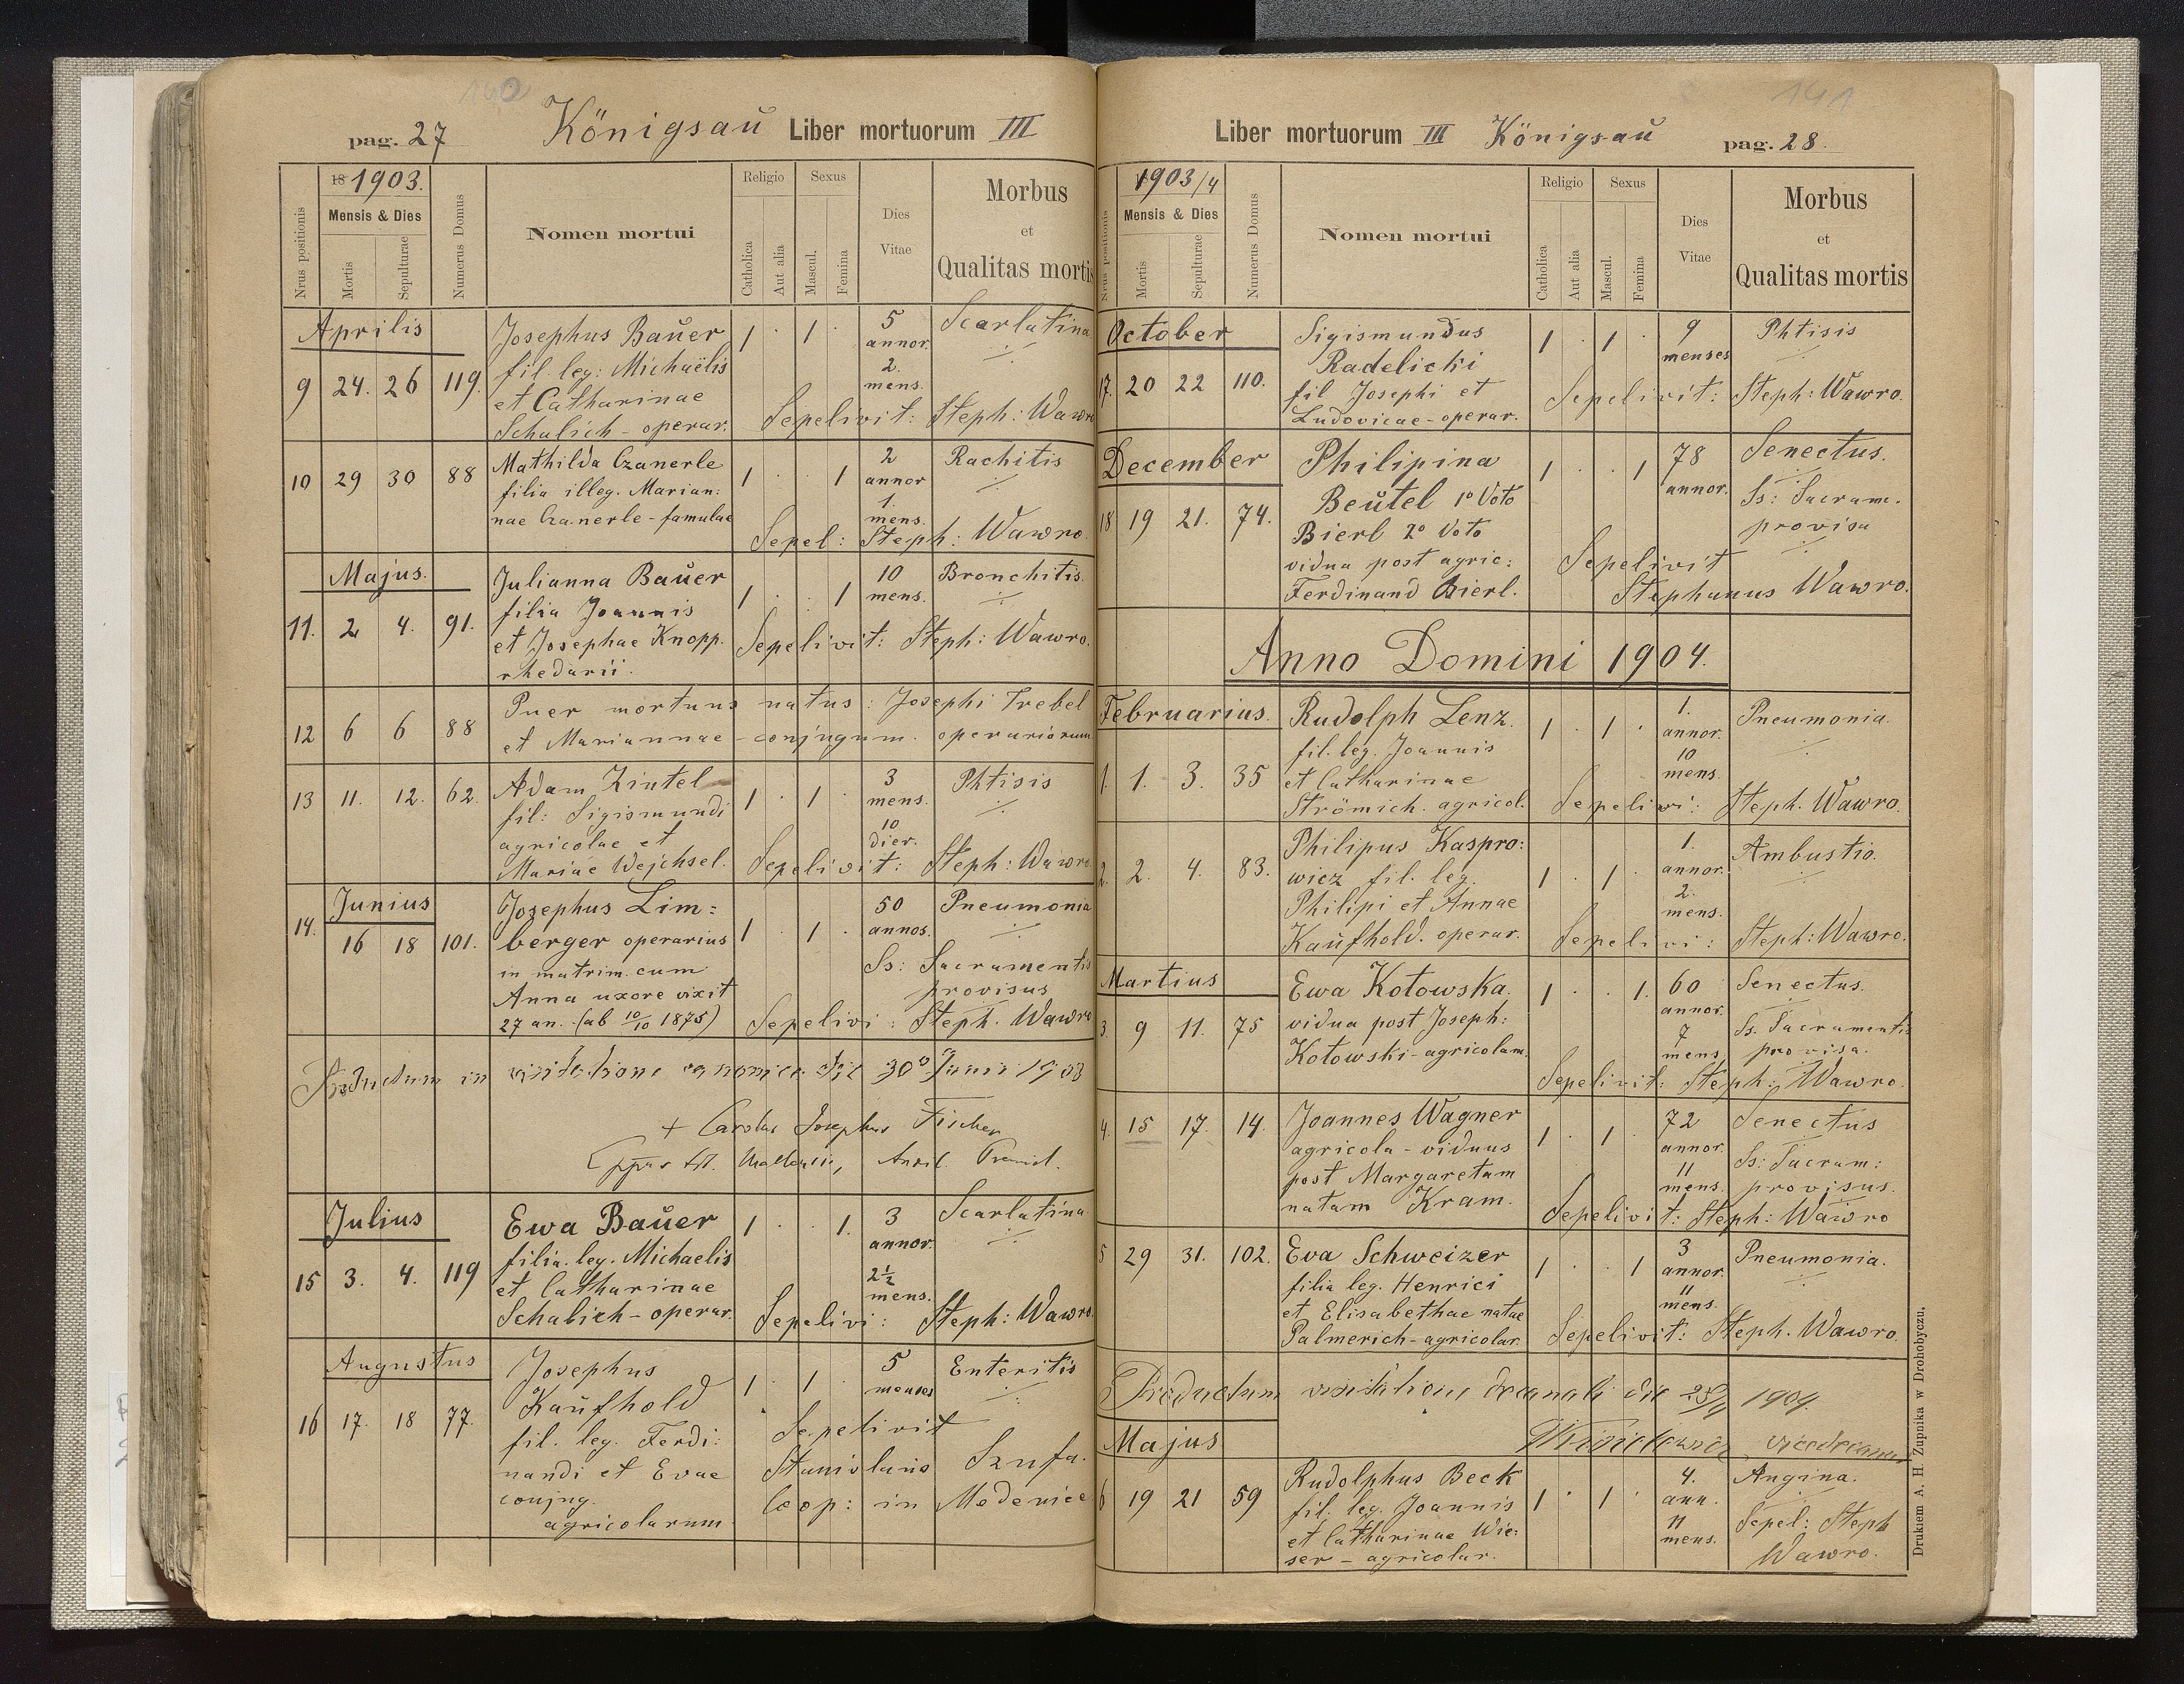 140
pag. 27 Königsaŭ Liber mortuorum III
18 1903.
Mensis & Dies
Nrus positionis
Mortis
Sepulturae
Numerus Domus
Nomen mortui
Religio
Catholica
Aut alia
Sexus
Mascul.
Femina
Dies
Vitae
Morbus
et
Qualitas mortis
Aprilis
9 24. 26 119. Josephus Baŭer 1 . 1 . 5 annor. Scarlatina
fil. leg: Michaëlis 2. mens.
et Catharinae
Schalich - operar. Sepelivit: Steph: Wawro
10 29 30 88 Mathilda Czanerle 1 . . 1 2 annor Rachitis
filia illeg. Marian: 1. mens.
nae Czanerle - famulae Sepel: Steph: Wawro
Majus.
11. 2 4. 91. Julianna Baŭer 1 . . 1 10 mens. Bronchitis.
filia Joannis
et Josephae Knopp. Sepelivit: Steph: Wawro.
rhedarii.
12 6 6 88 Puer mortuus natus: Josephi Trebel
et Mariannae - conjugum. operariorum
13 11. 12. 62. Adam Kintel 1 . 1 . 3 mens. Phtisis
fil: Sigismundi 10 dier.
agricolae et
Mariae Wejchsel. Sepelivit: Steph: Wawro
Junius
14. 16 18 101. Josephus Lim= 1 . 1 . 50 annos. Pneumonia
berger operarius
in matrim. cum Ss: Sacramentis
Anna uxore vixit provisus
27 an. (ab 10/10 1875) Sepelivi: Steph. Wawro
Productum in visitatione canonica die 30 Junii 1903
+ Carolus Josephus Fischer
Eppus tit. Mallensis, Auxil. Premisl.
Julius
15 3. 4. 119 Ewa Baŭer 1 . . 1. 3 annor. Scarlatina
filia. leg. Michaelis 2½ mens.
et Catharinae
Schalich - operar. Sepelivi: Steph: Wawro.
Augustus
16 17. 18 77. Josephus 1 . 1 . 5 menses Enteritis
Kaŭfhold
fil. leg. Ferdi: Sepelivit
nandi et Evae Stanislaus Szufa.
conjug. Coop: in Medenice
agricolarum
141
Liber mortuorum III Königsaŭ pag. 28.
1903/4
Mensis & Dies
Nrus positionis
Mortis
Sepulturae
Numerus Domus
Nomen mortui
Religio
Catholica
Aut alia
Sexus
Mascul.
Femina
Dies
Vitae
Morbus
et
Qualitas mortis
October
17. 20 22 110. Sigismundus 1 . 1 . 9 menses Phtisis
Radelicki
fil Josephi et Sepelivit: Steph: Wawro.
Ludovicae - operar.
December
18 19 21. 74. Philipina 1 . . 1 78 annor. Senectus.
Beŭtel 1º Voto Ss: Sacram.
Bierl 2º Voto provisa
vidua post agric: Sepelivit
Ferdinand Bierl. Stephanus Wawro.
Anno Domini 1904.
Februarius.
1. 1. 3. 35 Rudolph Lenz. 1 . 1 . 1. annor. Pneumonia.
fil. leg. Joannis 10 mens.
et Catharinae
Strömich. agricol. Sepelivi: Steph. Wawro.
2. 2. 4. 83. Philipus Kaspro: 1 . 1 . 1. annor. Ambustio.
wicz fil. leg. 2. mens.
Philipi et Annae
Kaŭfhold. operar. Sepelivi: Steph: Wawro.
Martius
3. 9 11. 75 Ewa Kotowska. 1 . . 1. 60 annor. Senectus.
vidua post Joseph: 7 mens. Ss. Sacramentis
Kotowski - agricolam. provisa.
Sepelivit: Steph: Wawro.
4. 15 17. 14. Joannes Wagner 1 . 1 . 72 annor. Senectus
agricola - viduus 11 mens. Ss: Sacram:
post Margaretam provisus.
natam Kram. Sepelivit: Steph: Wawro
5 29 31. 102. Eva Schweizer 1 . . 1 3 annor. Pneumonia.
filia leg. Henrici 11 mens.
et Elisabethae natae
Palmerich - agricolar. Sepelivit: Steph. Wawro.
Productum visitationi decanali die 1904.
vicedecanus
Majus
6 19 21 59 Rudolphus Beck 1 . 1 . 4. ann. Angina.
fil. leg. Joannis 11 mens. Sepel: Steph
et Catharinae Wie: Wawro.
ser - agricolar.
Drukiem A. H. Żupnika w Drohobyczu.